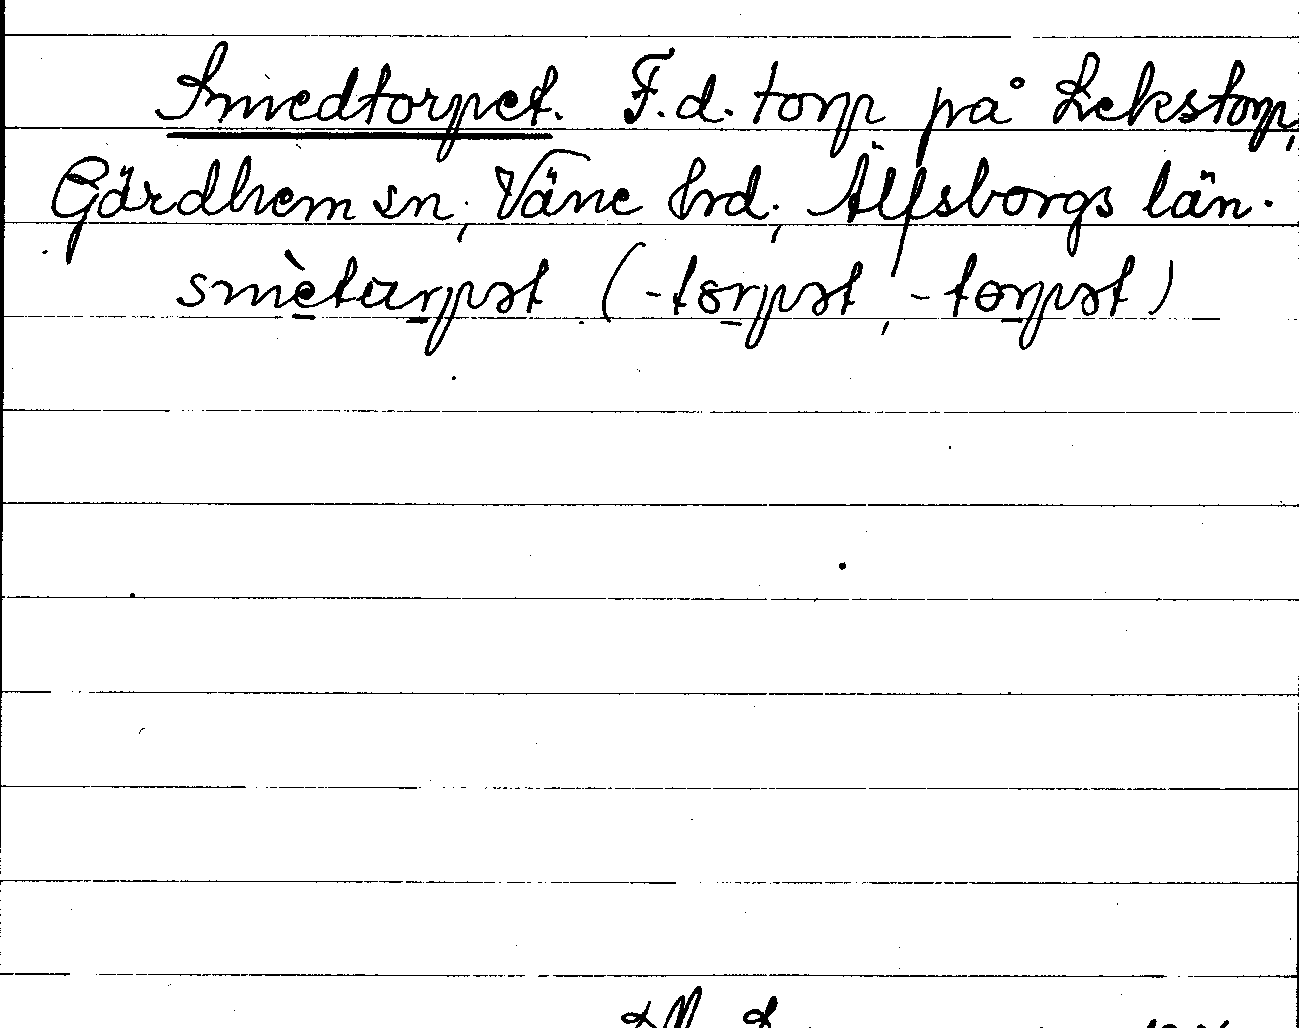 Smedtorpet. F.d. torp på Lekstorp,
Gärdhem sn, Väne hrd, Älfsborgs län.
smètarpət (-tɔrpət, -torpət)